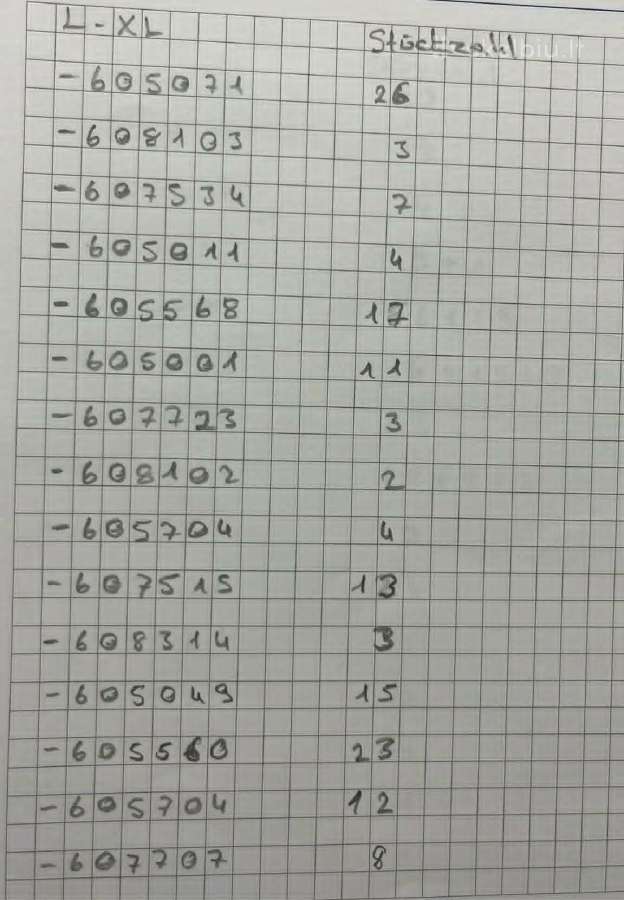 L - XL Stückzahl
- 605071 26
- 608103 3
- 607534 7
- 605011 4
- 605568 17
- 605001 11
- 607723 3
- 608102 2
- 605704 4
- 607515 13
- 608314 3
- 605049 15
- 605560 23
- 605704 12
- 607707 8